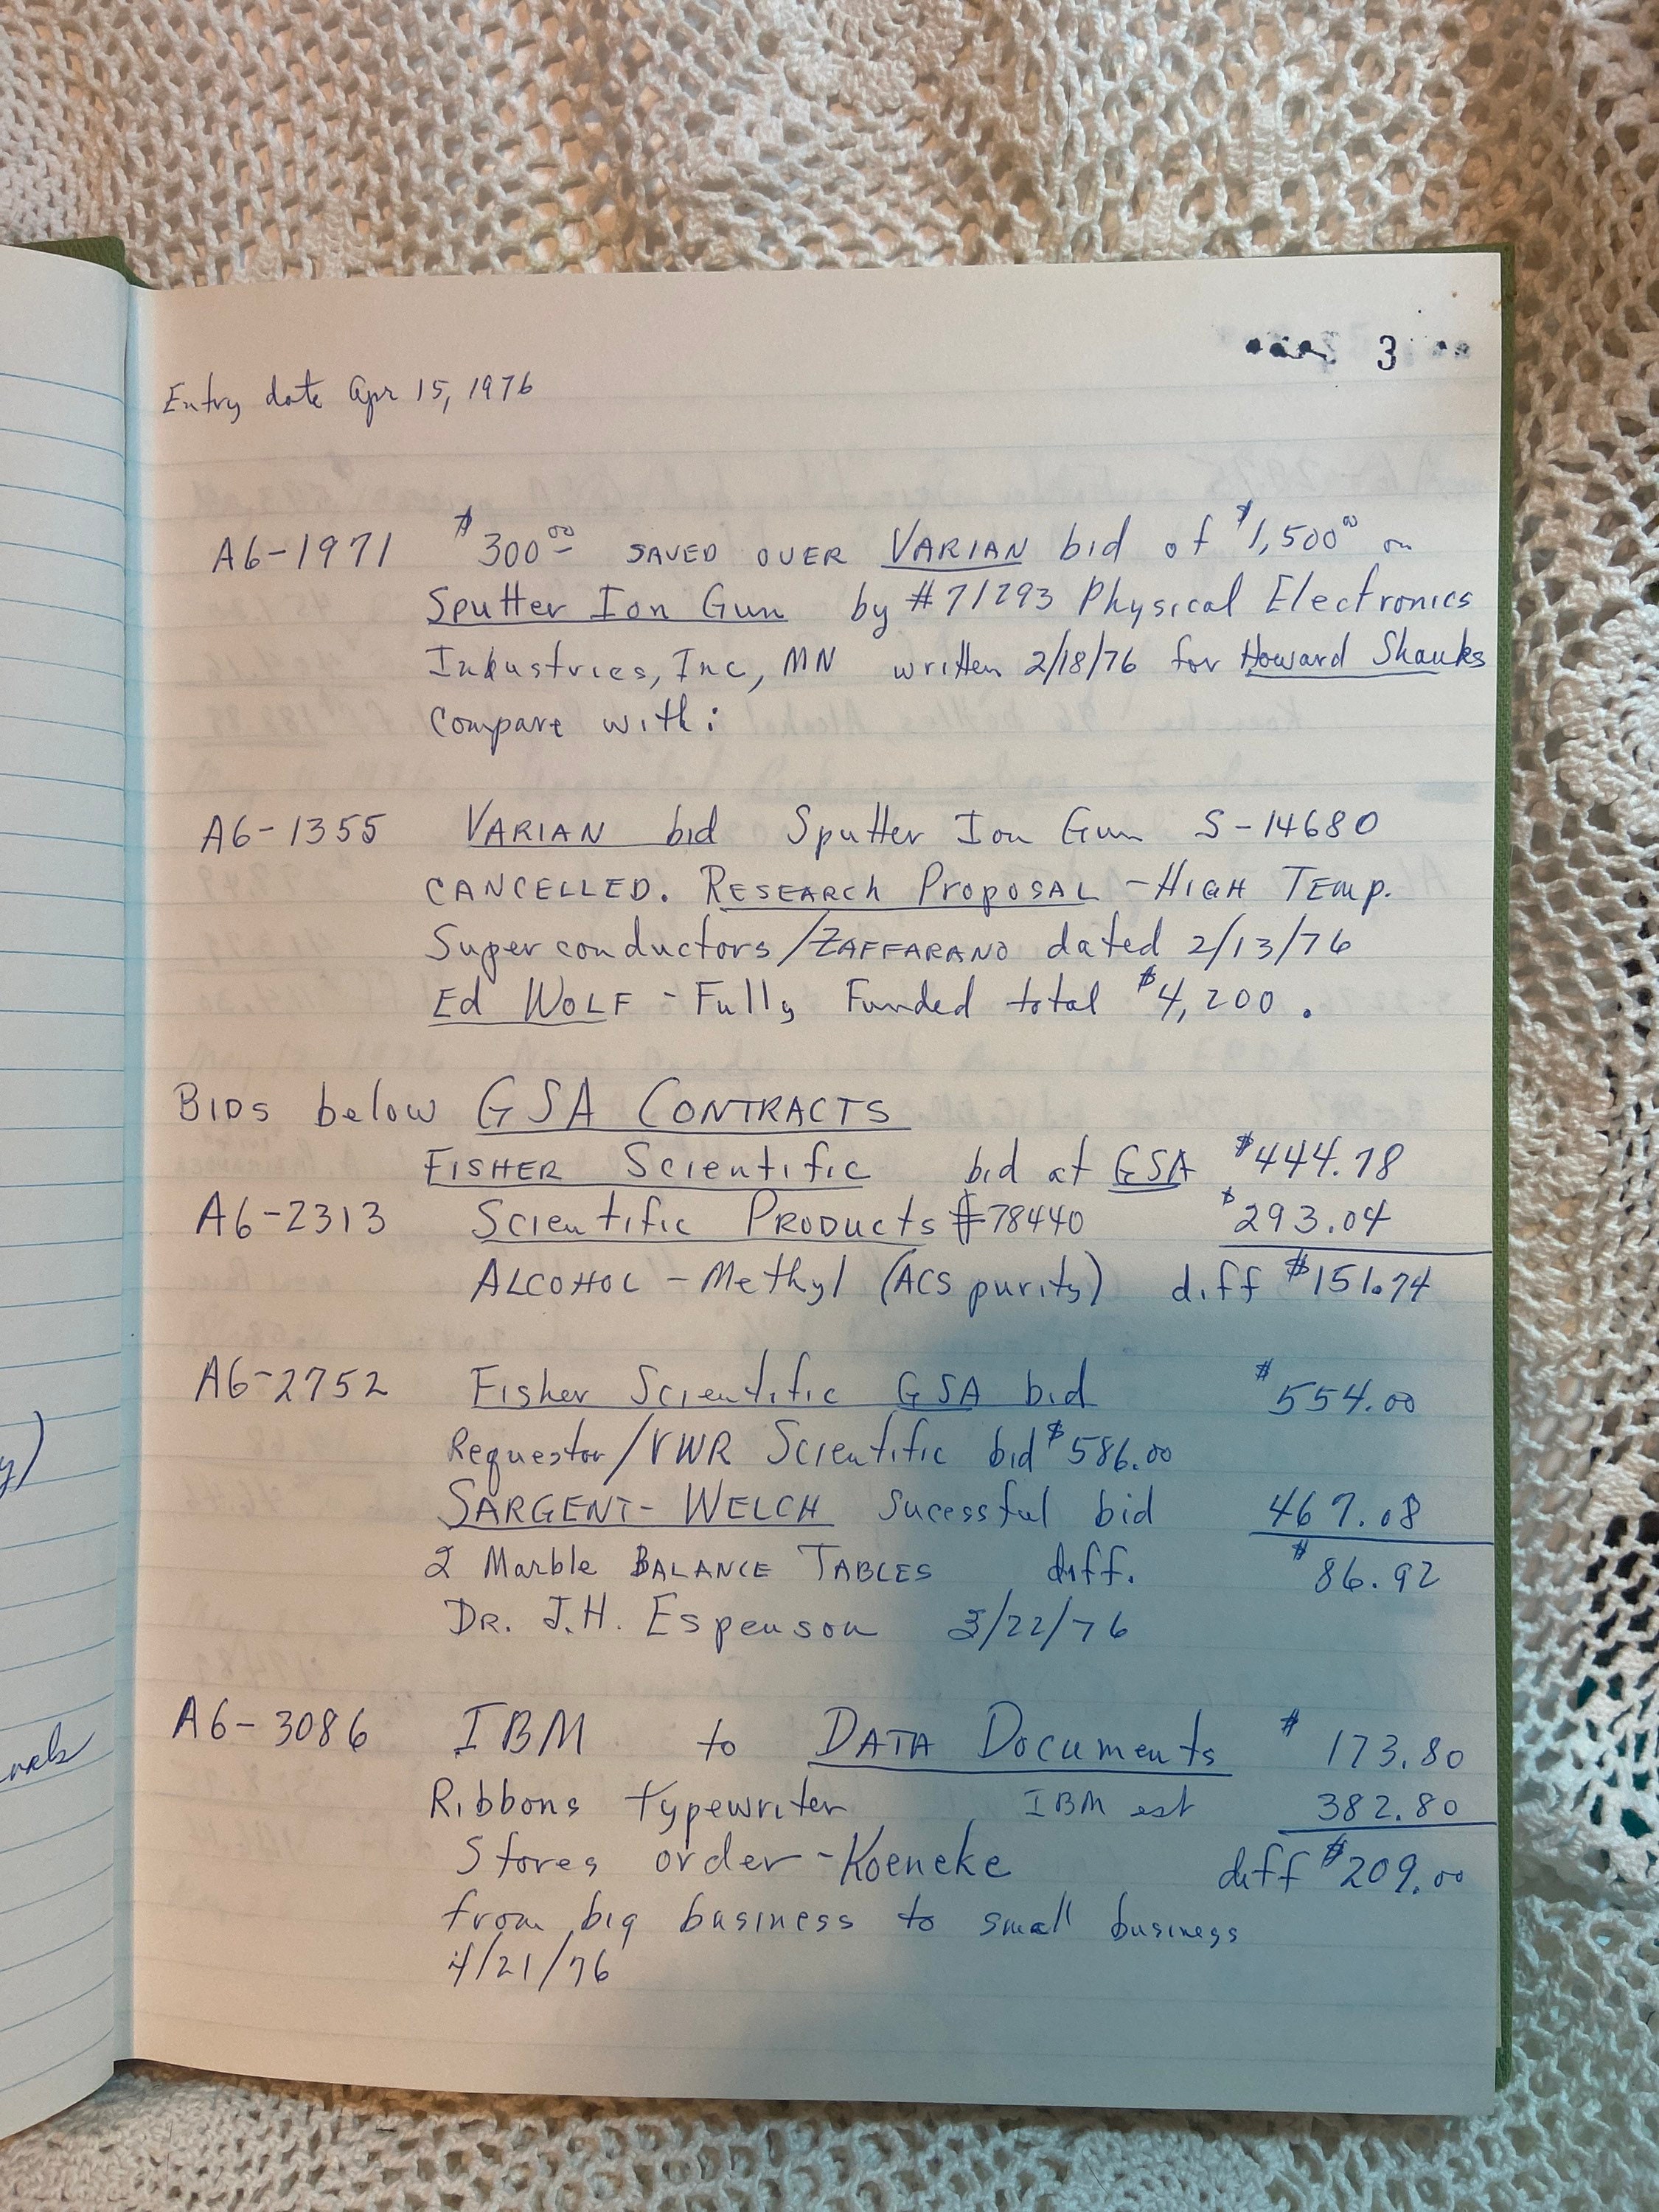 3
Entry date Apr 15, 1976
A6-1971 $300.00 SAVED OVER VARIAN bid of $1,500.00 on
Sputter Ion Gun by #71293 Physical Electronics
Industries, Inc, MN written 2/18/76 for Howard Shanks
Compare with:
A6-1355 VARIAN bid Sputter Ion Gun S-14680
CANCELLED. RESEARCH PROPOSAL - HIGH TEMP.
Superconductors/ZAFFARANO dated 2/13/76
Ed WOLF - Fully Funded total $4,200.
BIDS below GSA CONTRACTS
FISHER Scientific bid at GSA $444.78
A6-2313 Scientific PRODUCTS #78440 $293.04
ALCOHOL - Methyl (ACS purity) diff $151.74
A6-2752 Fisher Scientific GSA bid $554.00
Requestor/VWR Scientific bid $586.00
SARGENT-WELCH Sucessful bid 467.08
2 Marble BALANCE TABLES diff. $86.92
DR. J.H. Espenson 3/22/76
A6-3086 IBM to DATA Documents $173.80
Ribbons typewriter IBM est 382.80
Stores order - Koeneke diff $209.00
from big business to small business
4/21/76